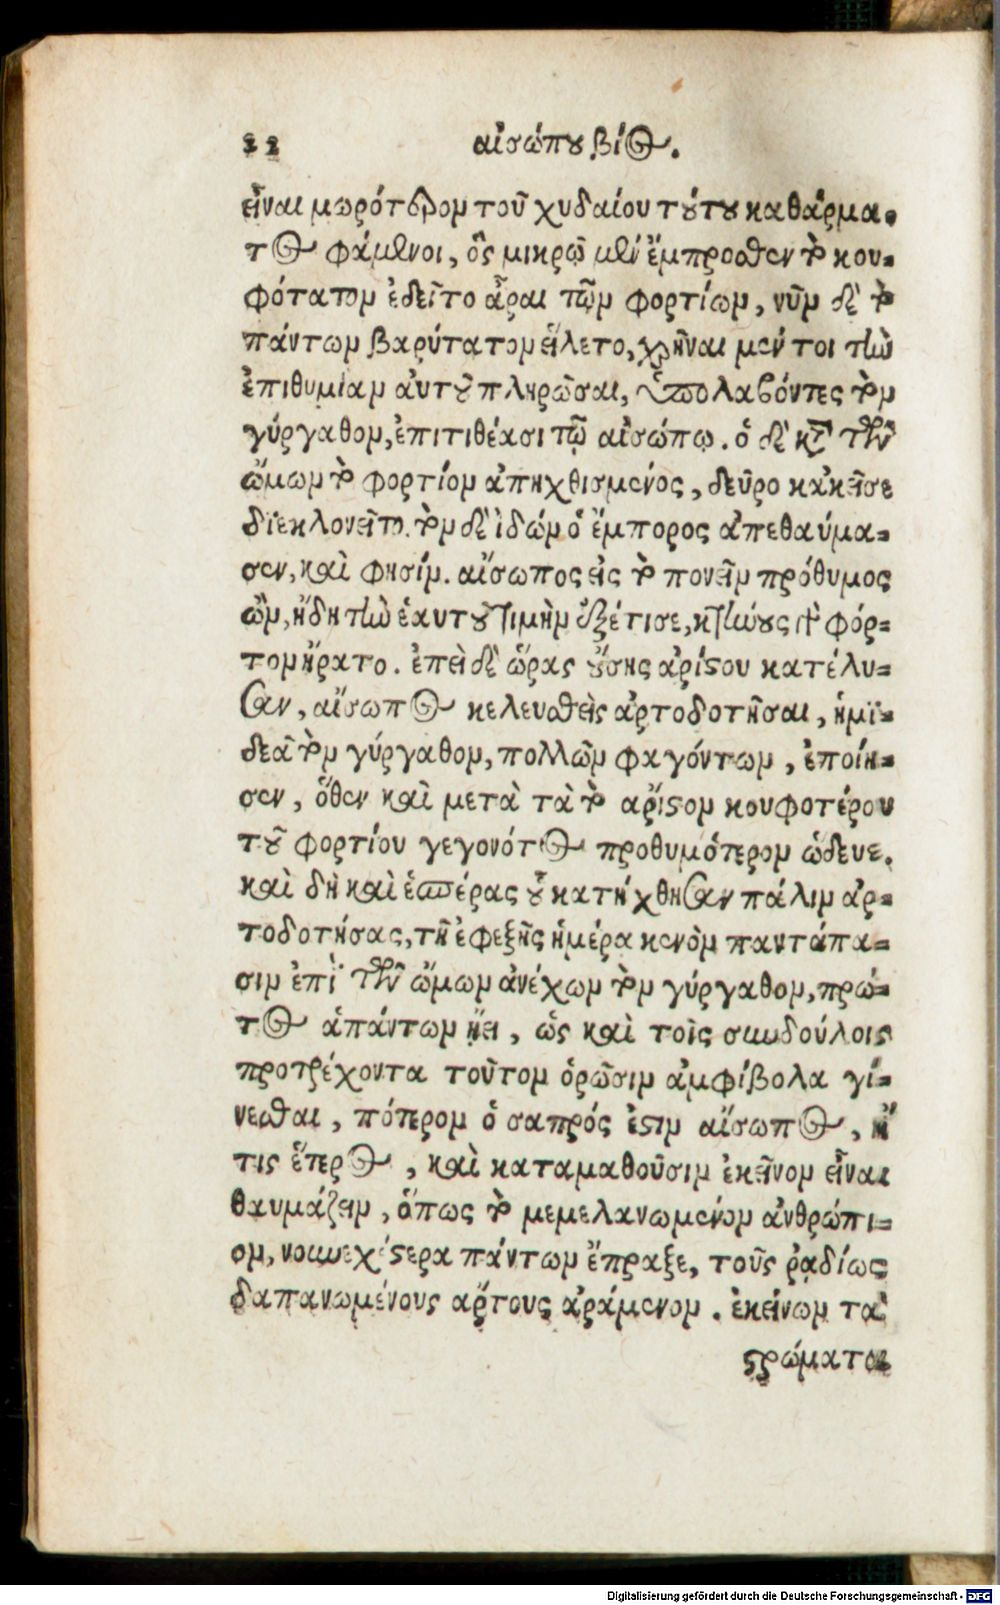 22 αἰσώπου βίος.
εἶναι μωρότερον τοῦ χυδαίου τούτου καθάρμα-
τος φάμενοι, ὃς μικρῷ μὲν ἔμπροσθεν τὸ κου-
φότατον ἐδεῖτο ἆραι τῶν φορτίων, νῦν δὲ τὸ
πάντων βαρύτατον εἵλετο, χρῆναι μέντοι τὴν
ἐπιθυμίαν αὐτοῦ πληρῶσαι, ὑπολαβόντες τὸν
γύργαθον, ἐπιτιθέασι τῷ αἰσώπῳ. ὁ δὲ κατὰ τῶν
ὤμων τὸ φορτίον ἀπηχθισμένος, δεῦρο κἀκεῖσε
διεκλονεῖτο. τὸν δὲ ἰδὼν ὁ ἔμπορος ἀπεθαύμα-
σεν, καὶ φησίν. αἴσωπος εἰς τὸ πονεῖν πρόθυμος
ὢν, ἤδη τὴν ἑαυτοῦ τιμὴν ἐξέτισε, κτήνους γὰρ φόρ-
τον ἤρατο. ἐπεὶ δὲ ὥρας οὔσης ἀρίστου κατέλυ-
σαν, αἴσωπος κελευσθεὶς ἀρτοδοτῆσαι, ἡμϊ-
δεᾶ τὸν γύργαθον, πολλῶν φαγόντων, ἐποίη-
σεν, ὅθεν καὶ μετὰ τὰ τὸ ἄριστον κουφοτέρου
τοῦ φορτίου γεγονότος προθυμότερον ὥδευε.
καὶ δὴ καὶ ἑσπέρας οὗ κατήχθησαν πάλιν ἀρ-
τοδοτήσας, τῇ ἐφεξῆς ἡμέρα κενὸν παντάπα-
σιν ἐπὶ τῶν ὤμων ἀνέχων τὸν γύργαθον, πρῶ-
τος ἁπάντων ᾔει, ὡς καὶ τοῖς συνδούλοις
προτρέχοντα τοῦτον ὁρῶσιν ἀμφίβολα γί-
νεσθαι, πότερον ὁ σαπρός ἐστιν αἴσωπος, ἤ
τις ἕτερος, καὶ καταμαθοῦσιν ἐκεῖνον εἶναι
θαυμάζειν, ὅπως τὸ μεμελανωμένον ἀνθρώπι-
ον, νουνεχέστερα πάντων ἔπραξε, τοῦς ῥᾳδίως
δαπανωμένους ἄρτους ἀράμενον. ἐκείνων τὰ
στρώματα
Digitalisierung gefördert durch die Deutsche Forschungsgemeinschaft - DFG